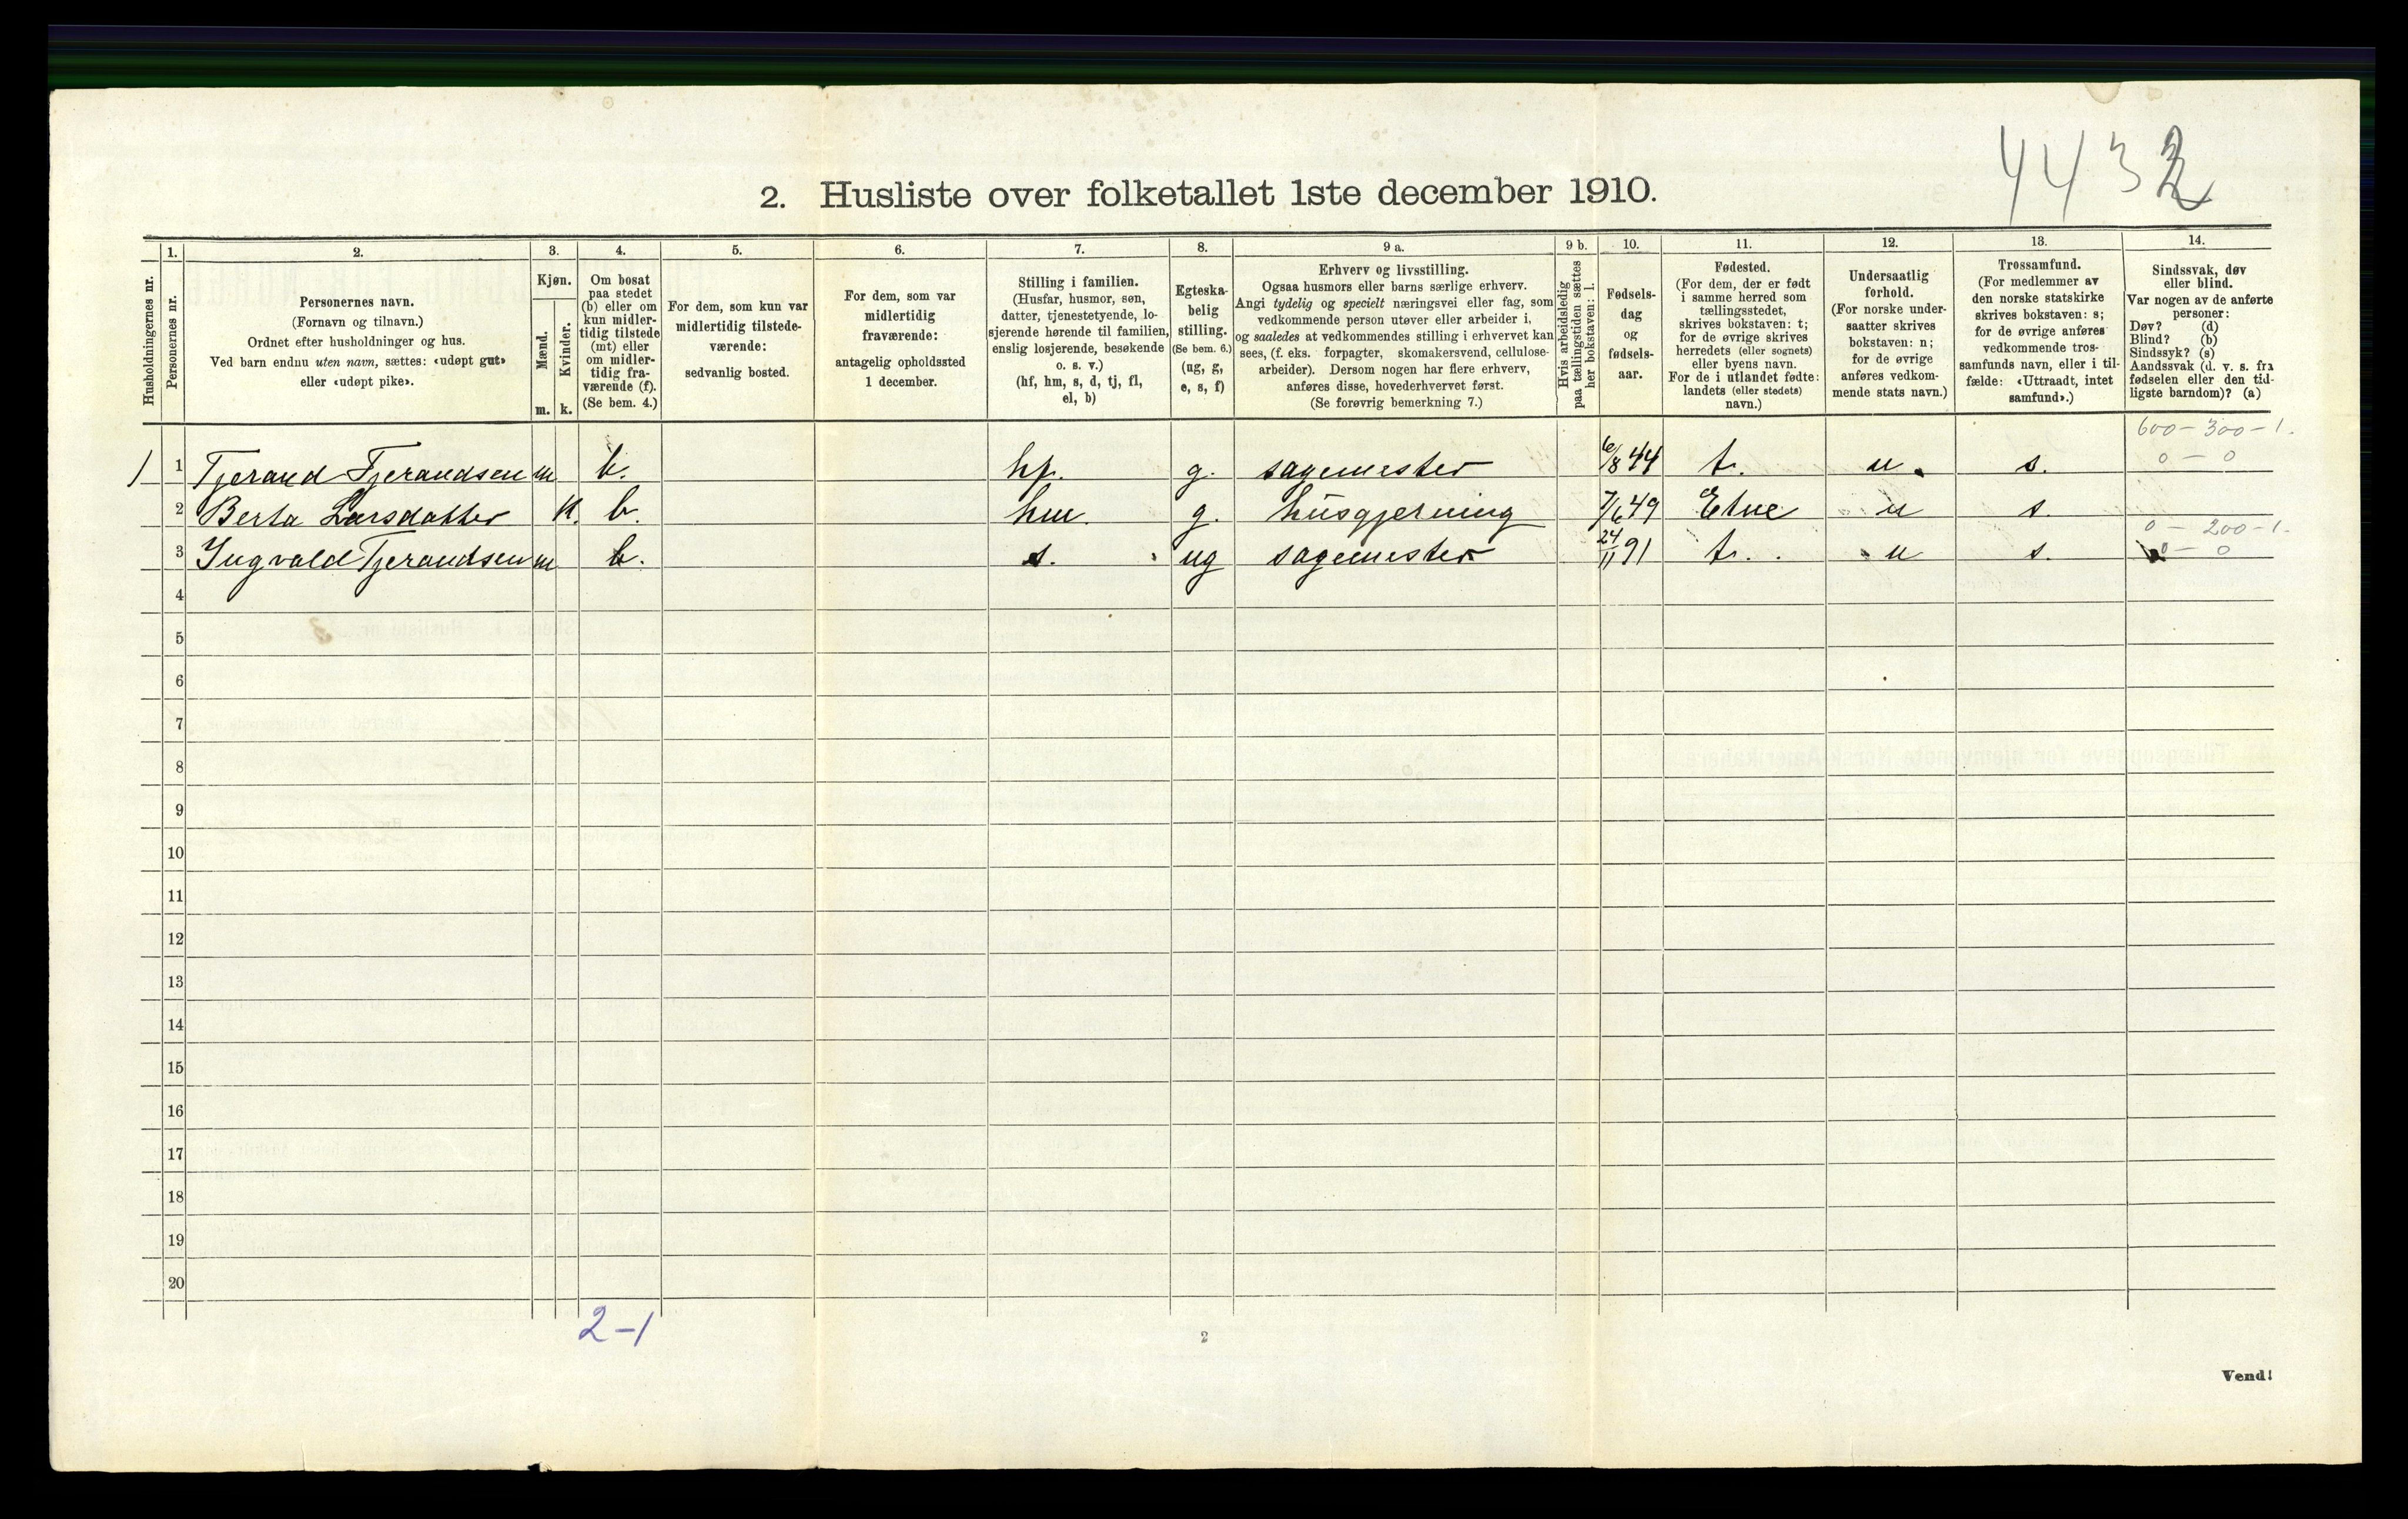 4432
2. Husliste over folketallet 1ste december 1910.
Husholdningernes nr.
1.
Personernes nr.
2.
Personernes navn.
(Fornavn og tilnavn.)
Ordnet efter husholdninger og hus.
Ved barn endnu uten navn, sættes: «udøpt gut»
eller «udøpt pike».
3.
Kjøn.
Mænd.
Kvinder.
m. k.
4.
Om bosat
paa stedet
(b) eller om
kun midler-
tidig tilstede
(mt) eller
om midler-
tidig fra-
værende (f).
(Se bem. 4.)
5.
For dem, som kun var
midlertidig tilstede-
værende:
sedvanlig bosted.
6.
For dem, som var
midlertidig
fraværende:
antagelig opholdssted
1 december.
7.
Stilling i familien.
(Husfar, husmor, søn,
datter, tjenestetyende, lo-
sjerende hørende til familien,
enslig losjerende, besøkende
o. s. v.)
(hf, hm, s, d, tj, fl,
el, b)
8.
Egteska-
belig
stilling.
(Se bem. 6.)
(ug, g,
e, s, f)
9 a.
Erhverv og livsstilling.
Ogsaa husmors eller barns særlige erhverv.
Angi tydelig og specielt næringsvei eller fag, som
vedkommende person utøver eller arbeider i,
og saaledes at vedkommendes stilling i erhvervet kan
sees, (f. eks. forpagter, skomakersvend, cellulose-
arbeider). Dersom nogen har flere erhverv,
anføres disse, hovederhvervet først.
(Se forøvrig bemerkning 7.)
9 b.
Hvis arbeidsledig
paa tællingstiden sættes
her bokstaven: l.
10.
Fødsels-
dag
og
fødsels-
aar.
11.
Fødested.
(For dem, der er født
i samme herred som
tællingsstedet,
skrives bokstaven: t;
for de øvrige skrives
herredets (eller sognets)
eller byens navn.
For de i utlandet fødte:
landets (eller stedets)
navn.)
12.
Undersaatlig
forhold.
(For norske under-
saatter skrives
bokstaven: n;
for de øvrige
anføres vedkom-
mende stats navn.)
13.
Trossamfund.
(For medlemmer av
den norske statskirke
skrives bokstaven: s;
for de øvrige anføres
vedkommende tros-
samfunds navn, eller i til-
fælde: «Uttraadt, intet
samfund».)
14.
Sindssvak, døv
eller blind.
Var nogen av de anførte
personer:
Døv? (d)
Blind? (b)
Sindssyk? (s)
Aandssvak (d. v. s. fra
fødselen eller den tid-
ligste barndom)? (a)
600 – 300 – 1.
1 1 Tjerand Tjerandsen m b. hf. g. sagemester 6/8 44 t. n. s. 0 – 0
2 Berta Larsdatter k. b. hm. g. husgjerning 7/6 49 Etne n s.
0 – 200 – 1.
3 Ingvald Tjerandsen m b. s. ug sagemester 24/11 91 t. n s. 0 – 0
4
5
6
7
8
9
10
11
12
13
14
15
16
17
18
19
20
2-1
2
Vend!